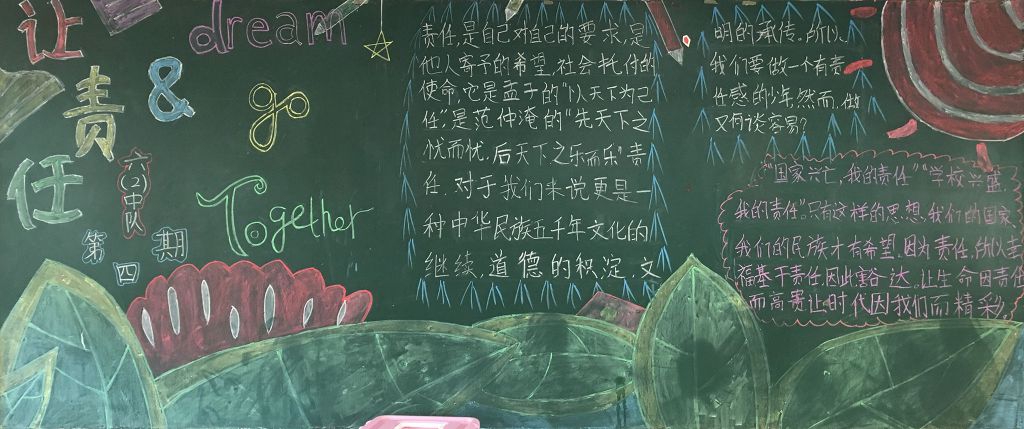 让
责
任
&
dream
go
Together
六(2)中队
第四期
责任,是自己对自己的要求,是
他人寄予的希望,社会托付的
使命,它是孟子的“以天下为己
任”,是范仲淹的“先天下之
忧而忧,后天下之乐而乐”责
任.对于我们来说更是一
种中华民族五千年文化的
继续,道德的积淀,文
明的承传.所以,
我们要做一个有责
任感的少年,然而,做
又何谈容易?
“国家兴亡,我的责任”“学校兴盛
我的责任”.只有这样的思想,我们的国家
我们的民族才有希望.因为责任,所以幸
福基于责任因此豁达.让生命因责任
而高贵让时代因我们而精彩